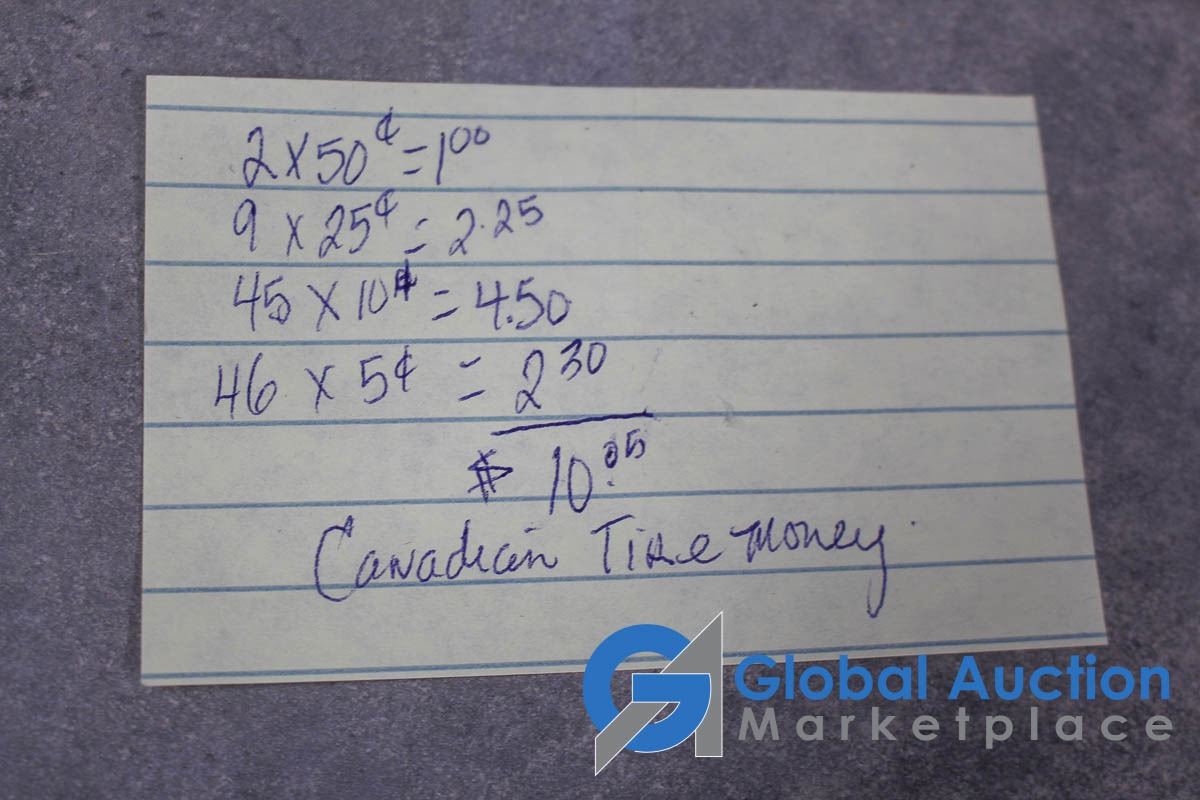 2 x 50¢ = 1 00
9 x 25¢ = 2.25
45 x 10¢ = 4.50
46 x 5¢ = 2 30
$ 10.05
Canadian Tire Money.
Global Auction
Marketplace